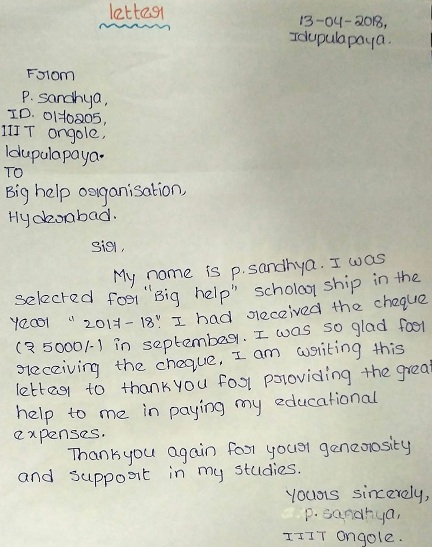 letter
13-04-2018,
Idupulapaya.
From
P. Sandhya,
ID. 0170205,
IIIT ongole,
Idupulapaya.
TO
Big help organisation,
Hyderabad.
Sir,
My name is p.sandhya. I was
selected for "Big help" scholar ship in the
year "2017-18". I had received the cheque
(₹ 5000/-) in september. I was so glad for
receiving the cheque. I am writing this
letter to thankyou for providing the great
help to me in paying my educational
expenses.
Thankyou again for your generosity
and support in my studies.
Yours sincerely,
p. sandhya,
IIIT ongole.